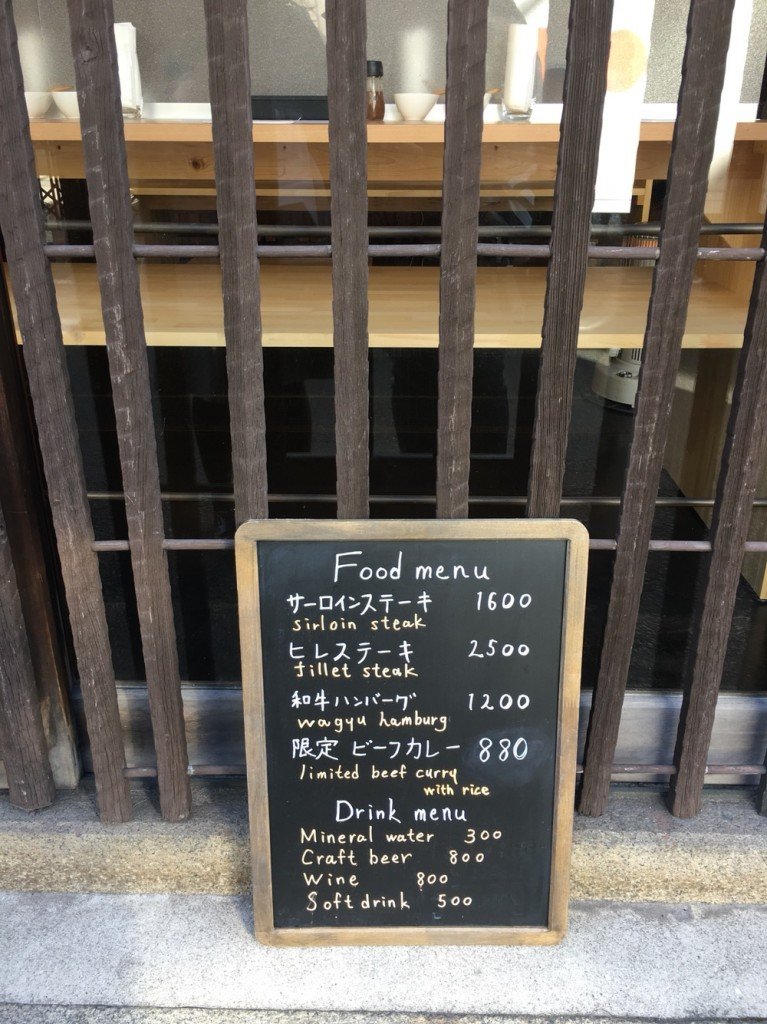 Food menu
サーロインステーキ 1600
sirloin steak
ヒレステーキ 2500
fillet steak
和牛ハンバーグ 1200
wagyu hamburg
限定 ビーフカレー 880
limited beef curry
with rice
Drink menu
Mineral water 300
Craft beer 800
Wine 800
Soft drink 500